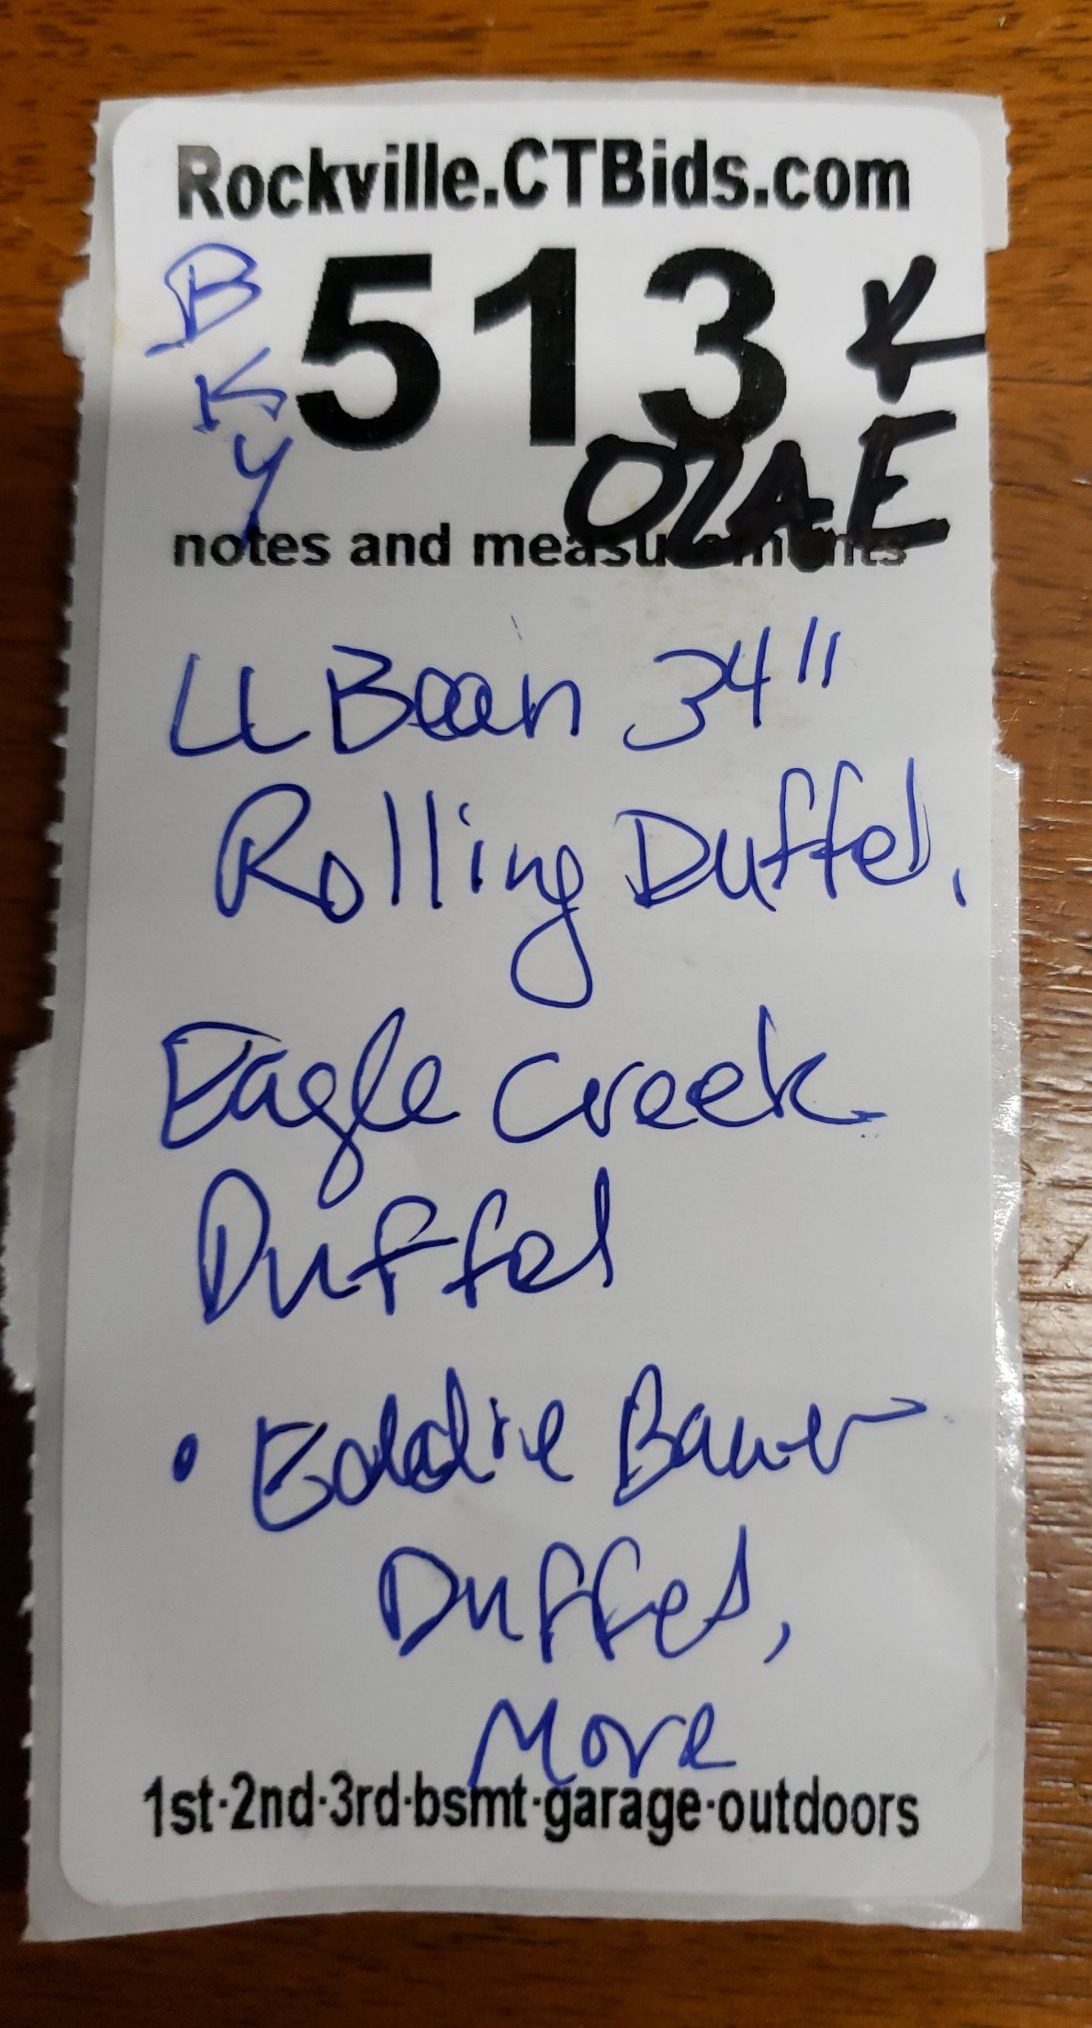 Rockville.CTBids.com
BKY
513
notes and measurements
LL Bean 34"
Rolling Duffel,
Eagle Creek
Duffel
• Eddie Bauer
Duffel,
More
1st·2nd·3rd·bsmt·garage·outdoors